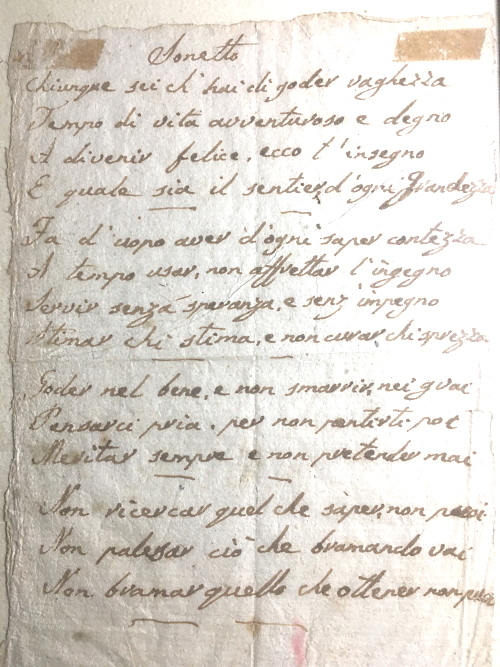 Sonetto
Chiunque sei ch'hai di goder vaghezza
Tempo di vita avventuroso e degno
A divenir felice, ecco t'insegno
E quale sia il sentier d'ogni Grandezza
Fa d'uopo aver d'ogni saper contezza
A tempo usar, non affrettar l'ingegno
Servir senza speranza, e senz'impegno
Stimar chi stima, e non curar chi sprezza
Goder nel bene, e non smarrir nei guai
Pensarci pria, per non pentirti poi
Meritar sempre e non pretender mai
Non ricercar quel che saper non puoi
Non palesar ciò che bramando vai
Non bramar quello che ottener non puoi